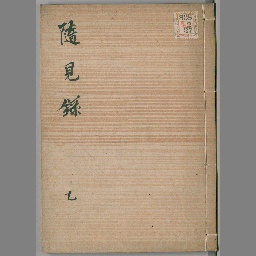 隨見錄
乙